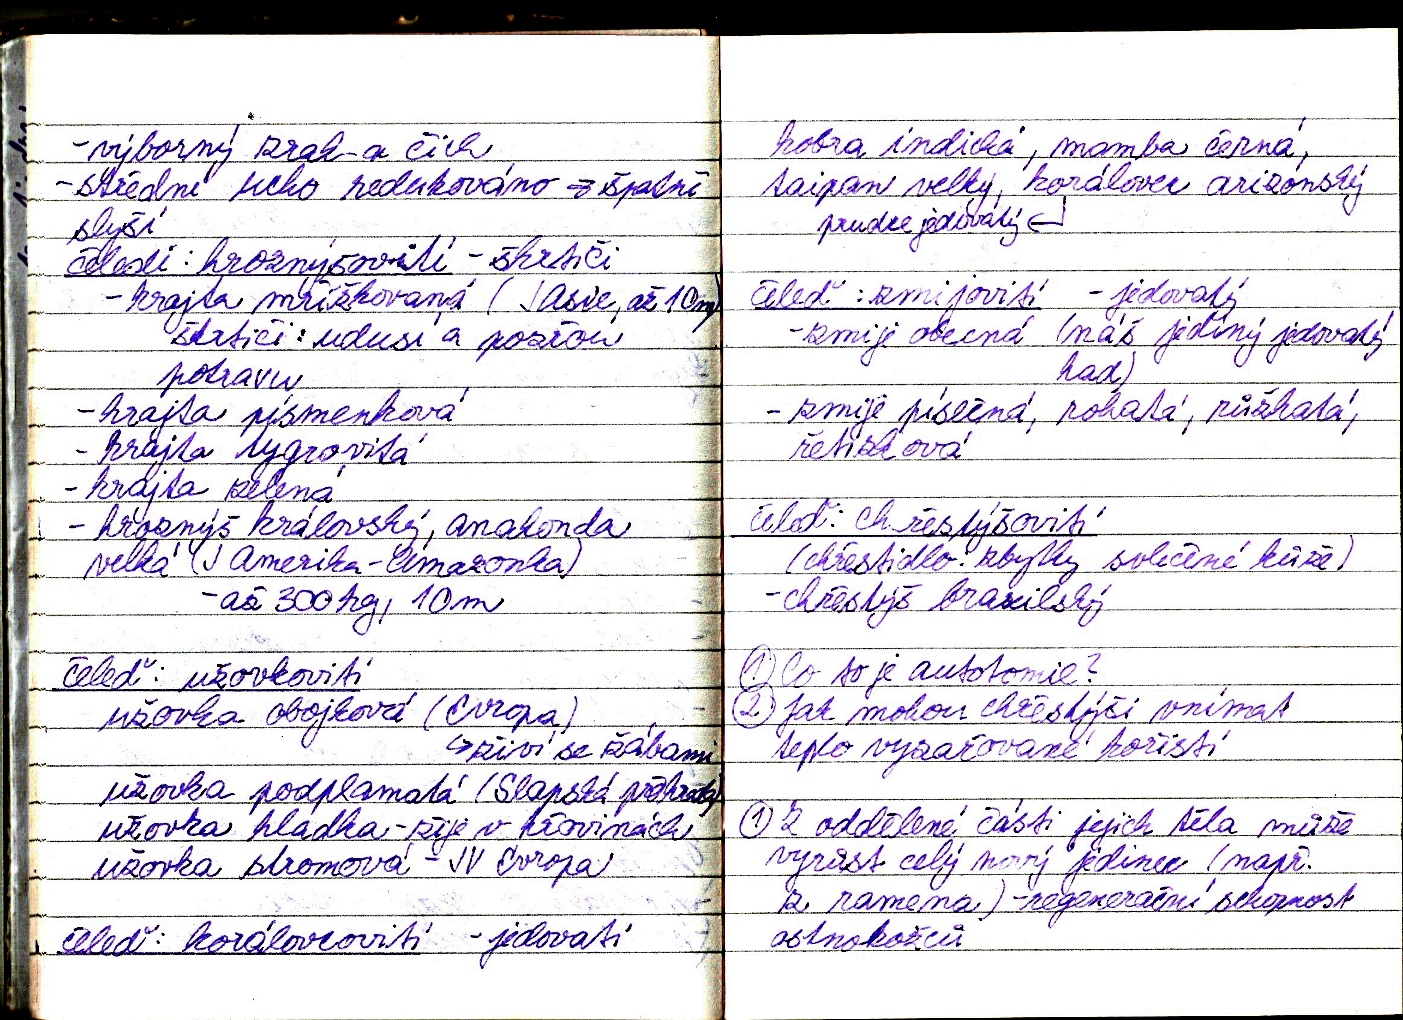 -výborný zrak a čich
-střední ucho redukováno => špatně
slyší
čeledi: hroznýšovití - škrtiči
-krajta mřížkovaná (J Asie, až 10m)
škrtiči: udusí a pozřou
potravu
-krajta písmenková
-krajta tygrovitá
-krajta zelená
-hroznýš královský, anakonda
velká (J Amerika-Amazonka)
-až 300kg, 10m
čeleď: užovkovití
užovka obojková (Evropa)
↳živí se žábami
užovka podplamatá (Slapská přehrada)
užovka hladka-žije v křovinách
užovka stromová - JV Evropa
čeleď: korálovcovití - jedovatí
kobra indická, mamba černá,
taipan velký, korálovec arizonský
prudce jedovatý ↵
čeleď: zmijovití - jedovatý
-zmije obecná (náš jediný jedovatý
had)
-zmije písečná, rohatá, růžkatá,
řetízková
čeleď: chřestýšovití
(chřestidlo: zbytky svlečené kůže)
-chřestýš brazilský
① Co to je autotomie?
② Jak mohou chřestýši vnímat
teplo vyzařované kořistí
① Z oddělené části jejich těla může
vyrůst celý nový jedinec (např.
z ramena) -regenerační schopnost
ostnokožců